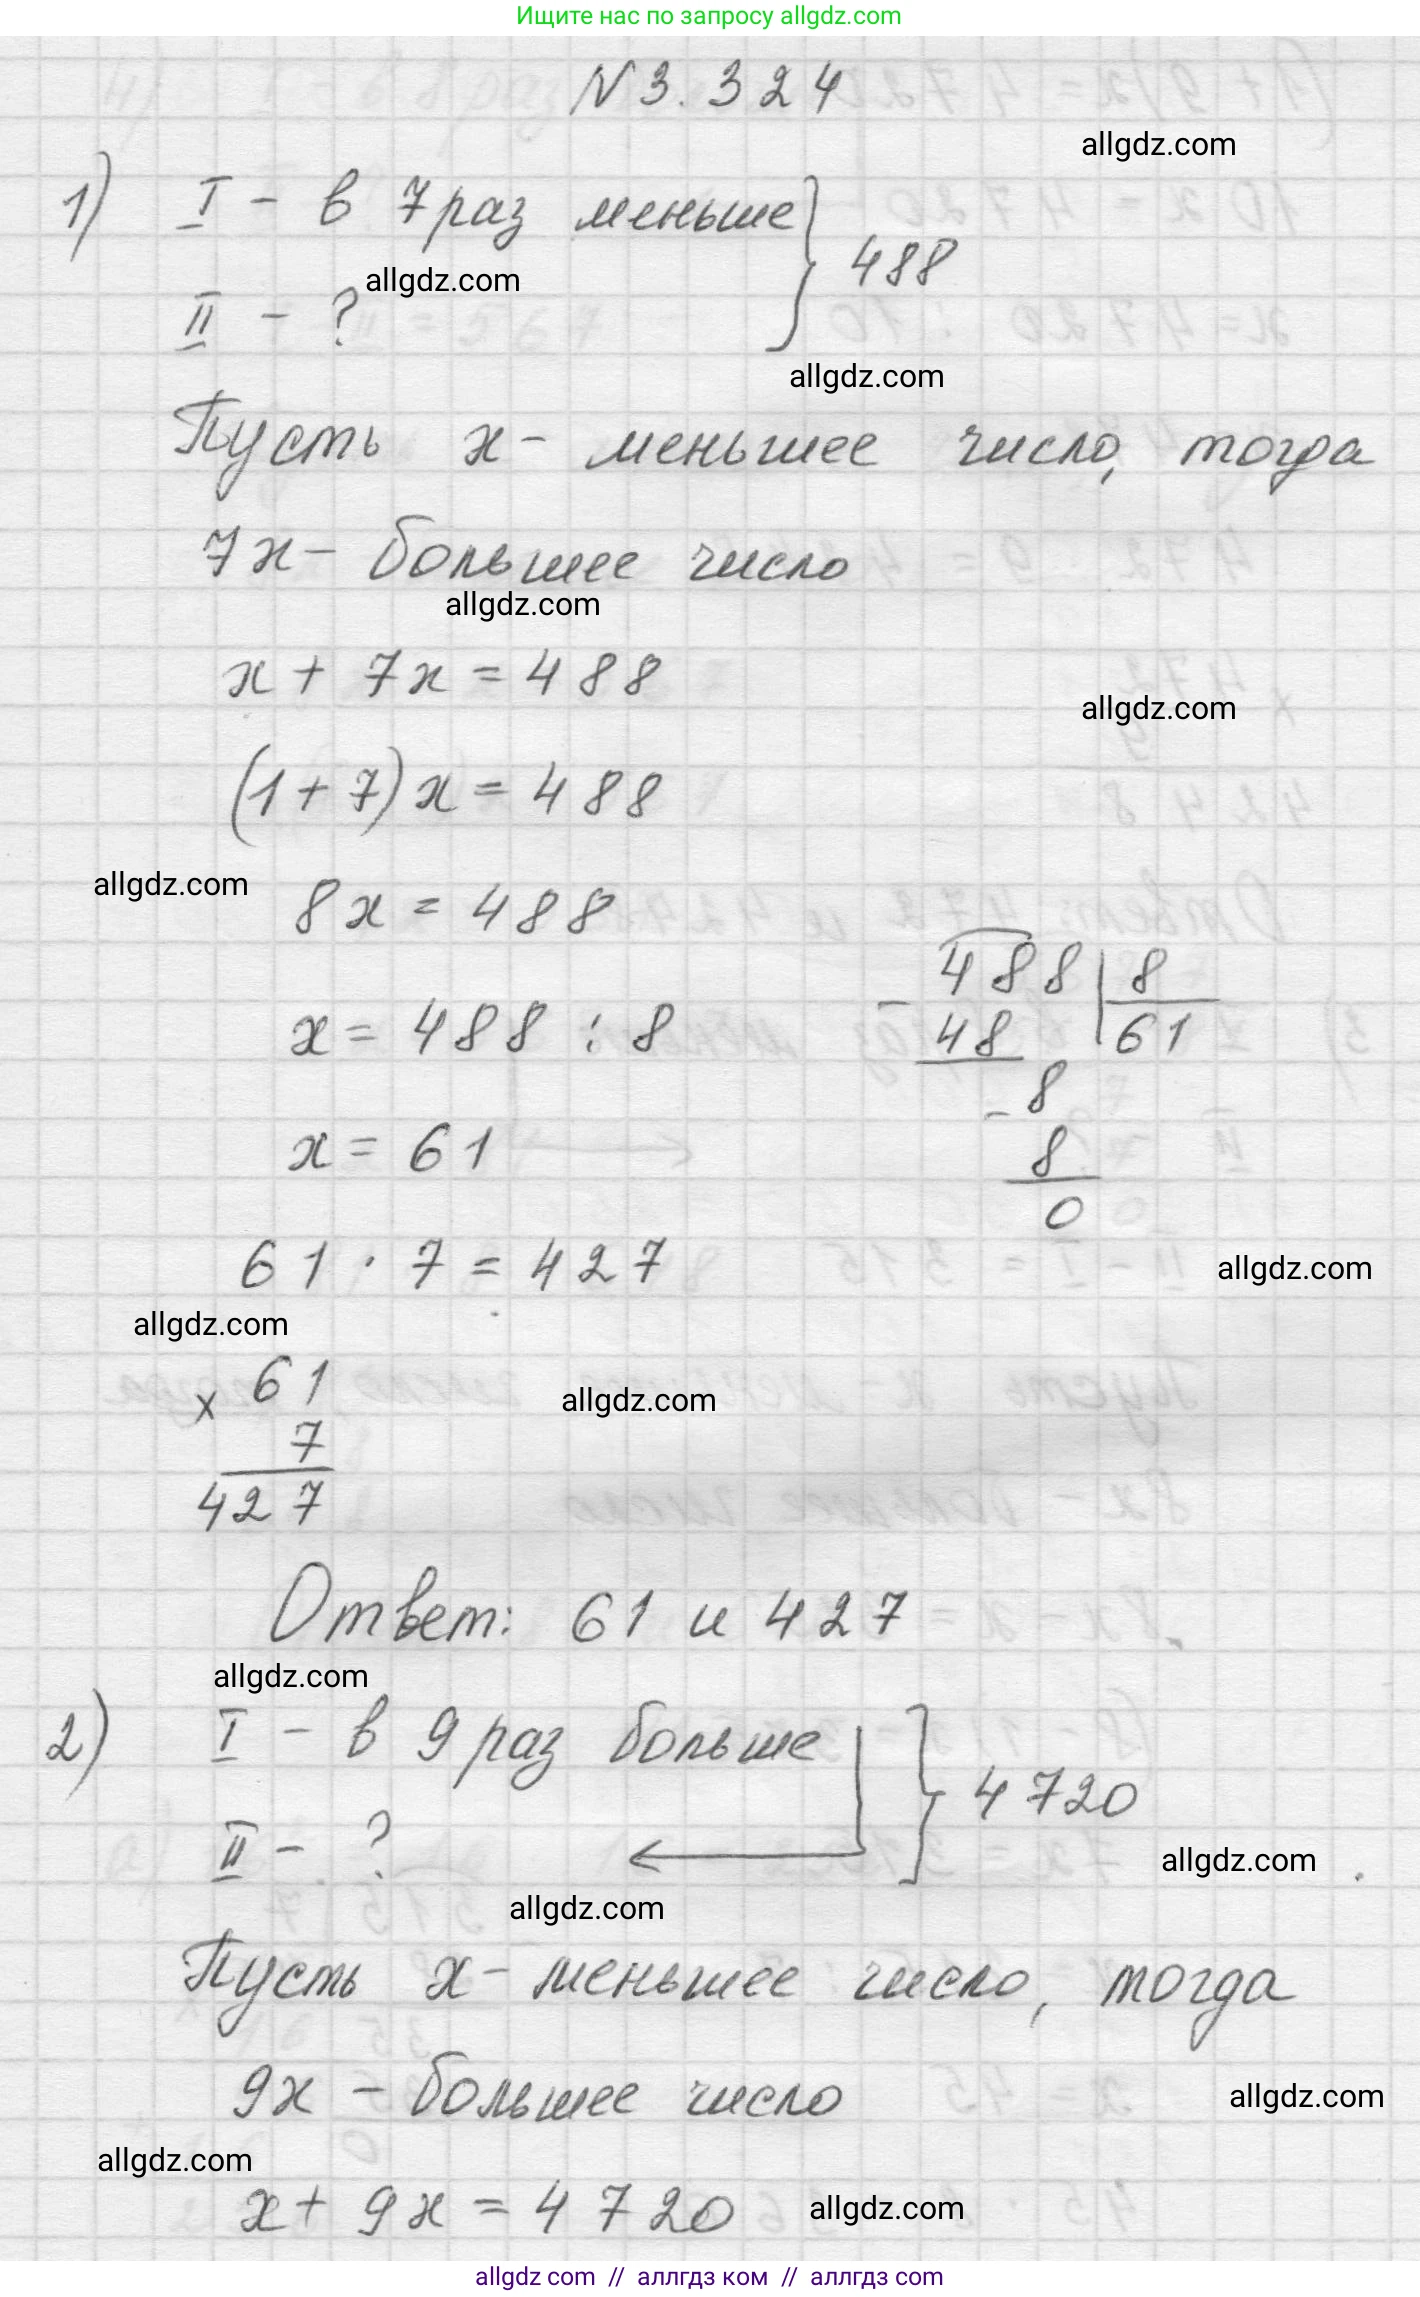 Ищите нас по запросу allgdz.com
N 3.324
allgdz.com
1) I - в 7 раз меньше } 488
allgdz.com
II - ?
allgdz.com
Пусть x - меньшее число, тогда
7x - большее число
allgdz.com
x + 7x = 488
allgdz.com
(1 + 7)x = 488
allgdz.com
8x = 488
x = 488 : 8
x = 61
- 488 | 8
48 61
- 8
8
0
61 · 7 = 427
allgdz.com
allgdz.com
x 61
7
427
allgdz.com
Ответ: 61 и 427
allgdz.com
2) I - в 9 раз больше } 4720
II - ?
allgdz.com
allgdz.com
Пусть x - меньшее число, тогда
9x - большее число
allgdz.com
allgdz.com
x + 9x = 4720
allgdz.com
allgdz com // аллгдз ком // аллгдз com